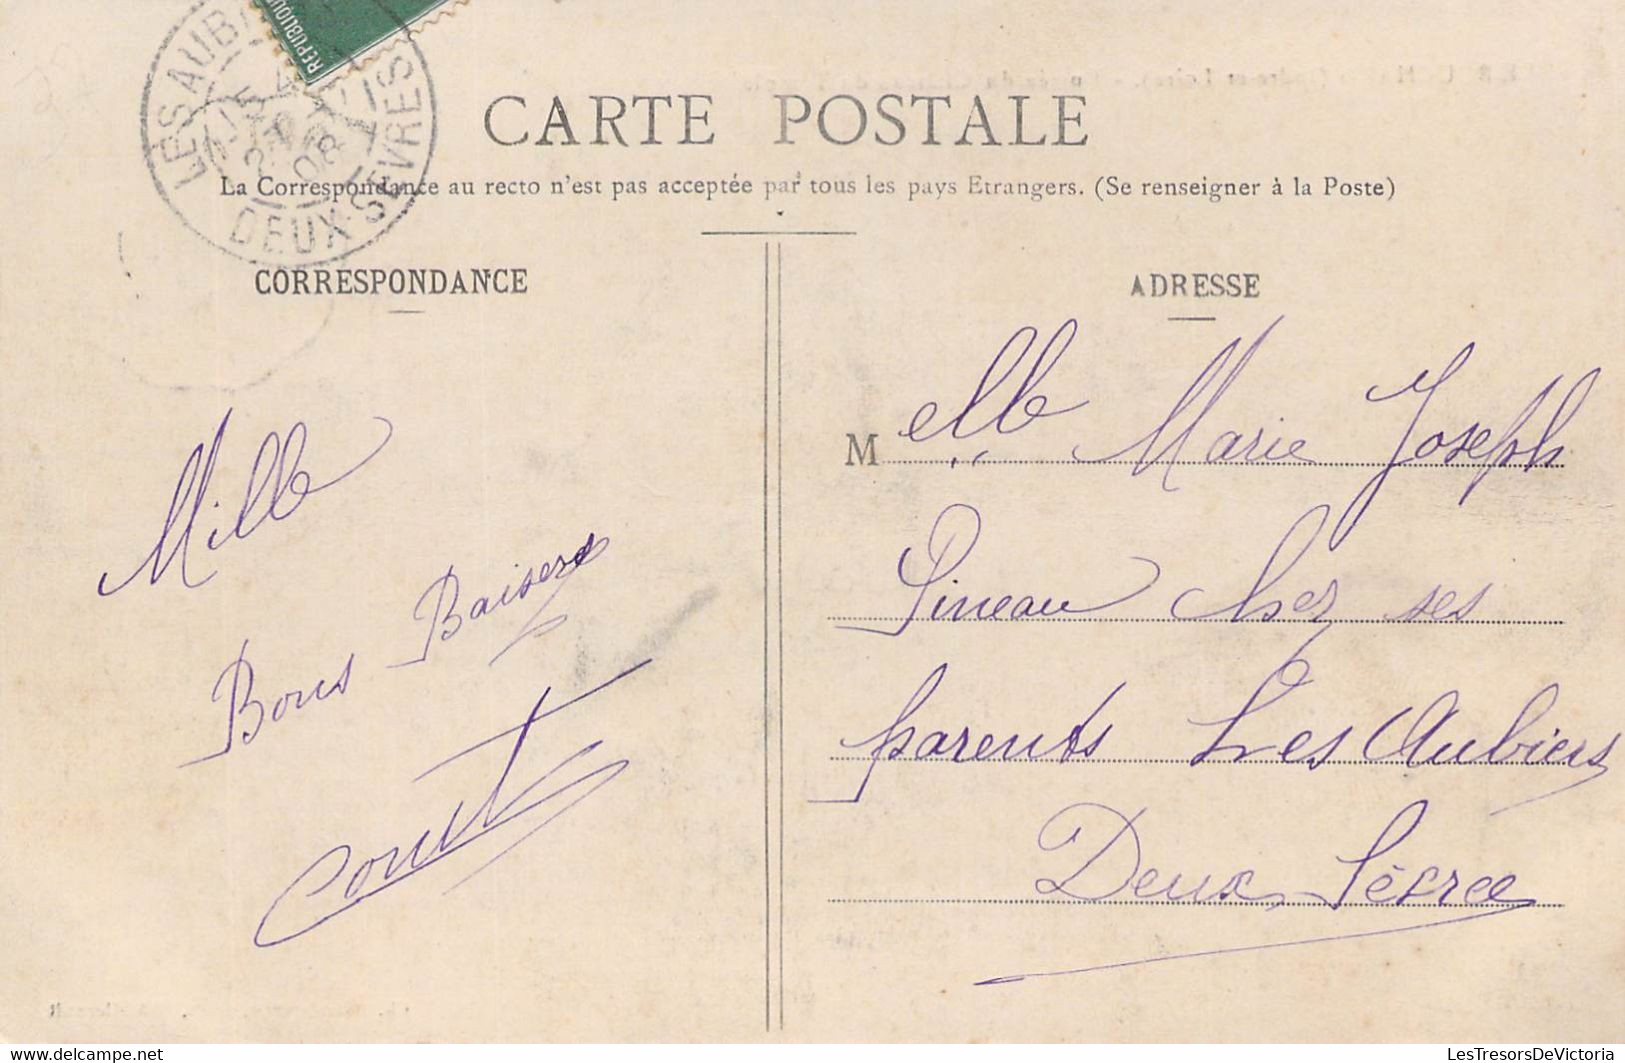 RÉPUBLIQUE
LES AUB
DEUX-SEVRES
08
CARTE POSTALE
La Correspondance au recto n'est pas acceptée par tous les pays Etrangers. (Se renseigner à la Poste)
CORRESPONDANCE
Mille
Bons Baisers
ADRESSE
M elle Marie Joseph
Pineau Chez ses
parents Les Aubiers
Deux Sèvres
LesTresorsDeVictoria